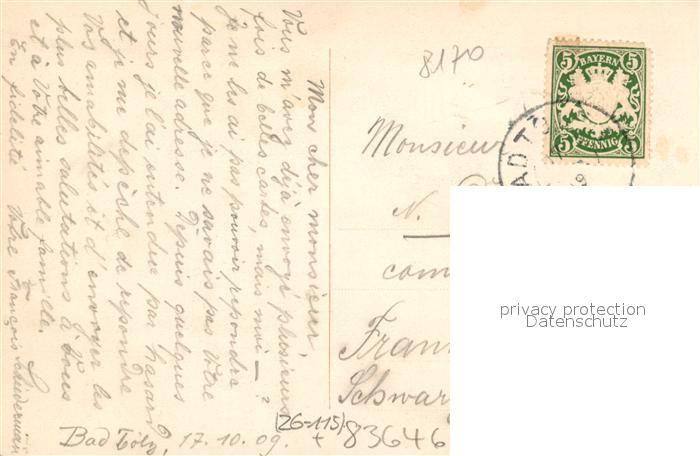 Mons cher monsieur!
Vous m'avez déjà envoyé plusieurs
fois de belles cartes, mais moi — ?
je ne les ai pas pouvoir repondre
parce que je ne savais pas Votre
nouvelle adresse. Depuis quelques
jours je l'ai entendre par hasard
et je me depèche de repondre
Vos amabilités et d'envoyer les
plus belles salutations à Vous
et à Votre aimable famille.
En fidelité Votre François
Bad Tölz, 17.10.09.
(26-115)
+ 83646
8170
BAYERN
5 5
5 5
PFENNIG
BAD TÖ
Monsieur
N.
com
Fran
Schwar
privacy protection
Datenschutz